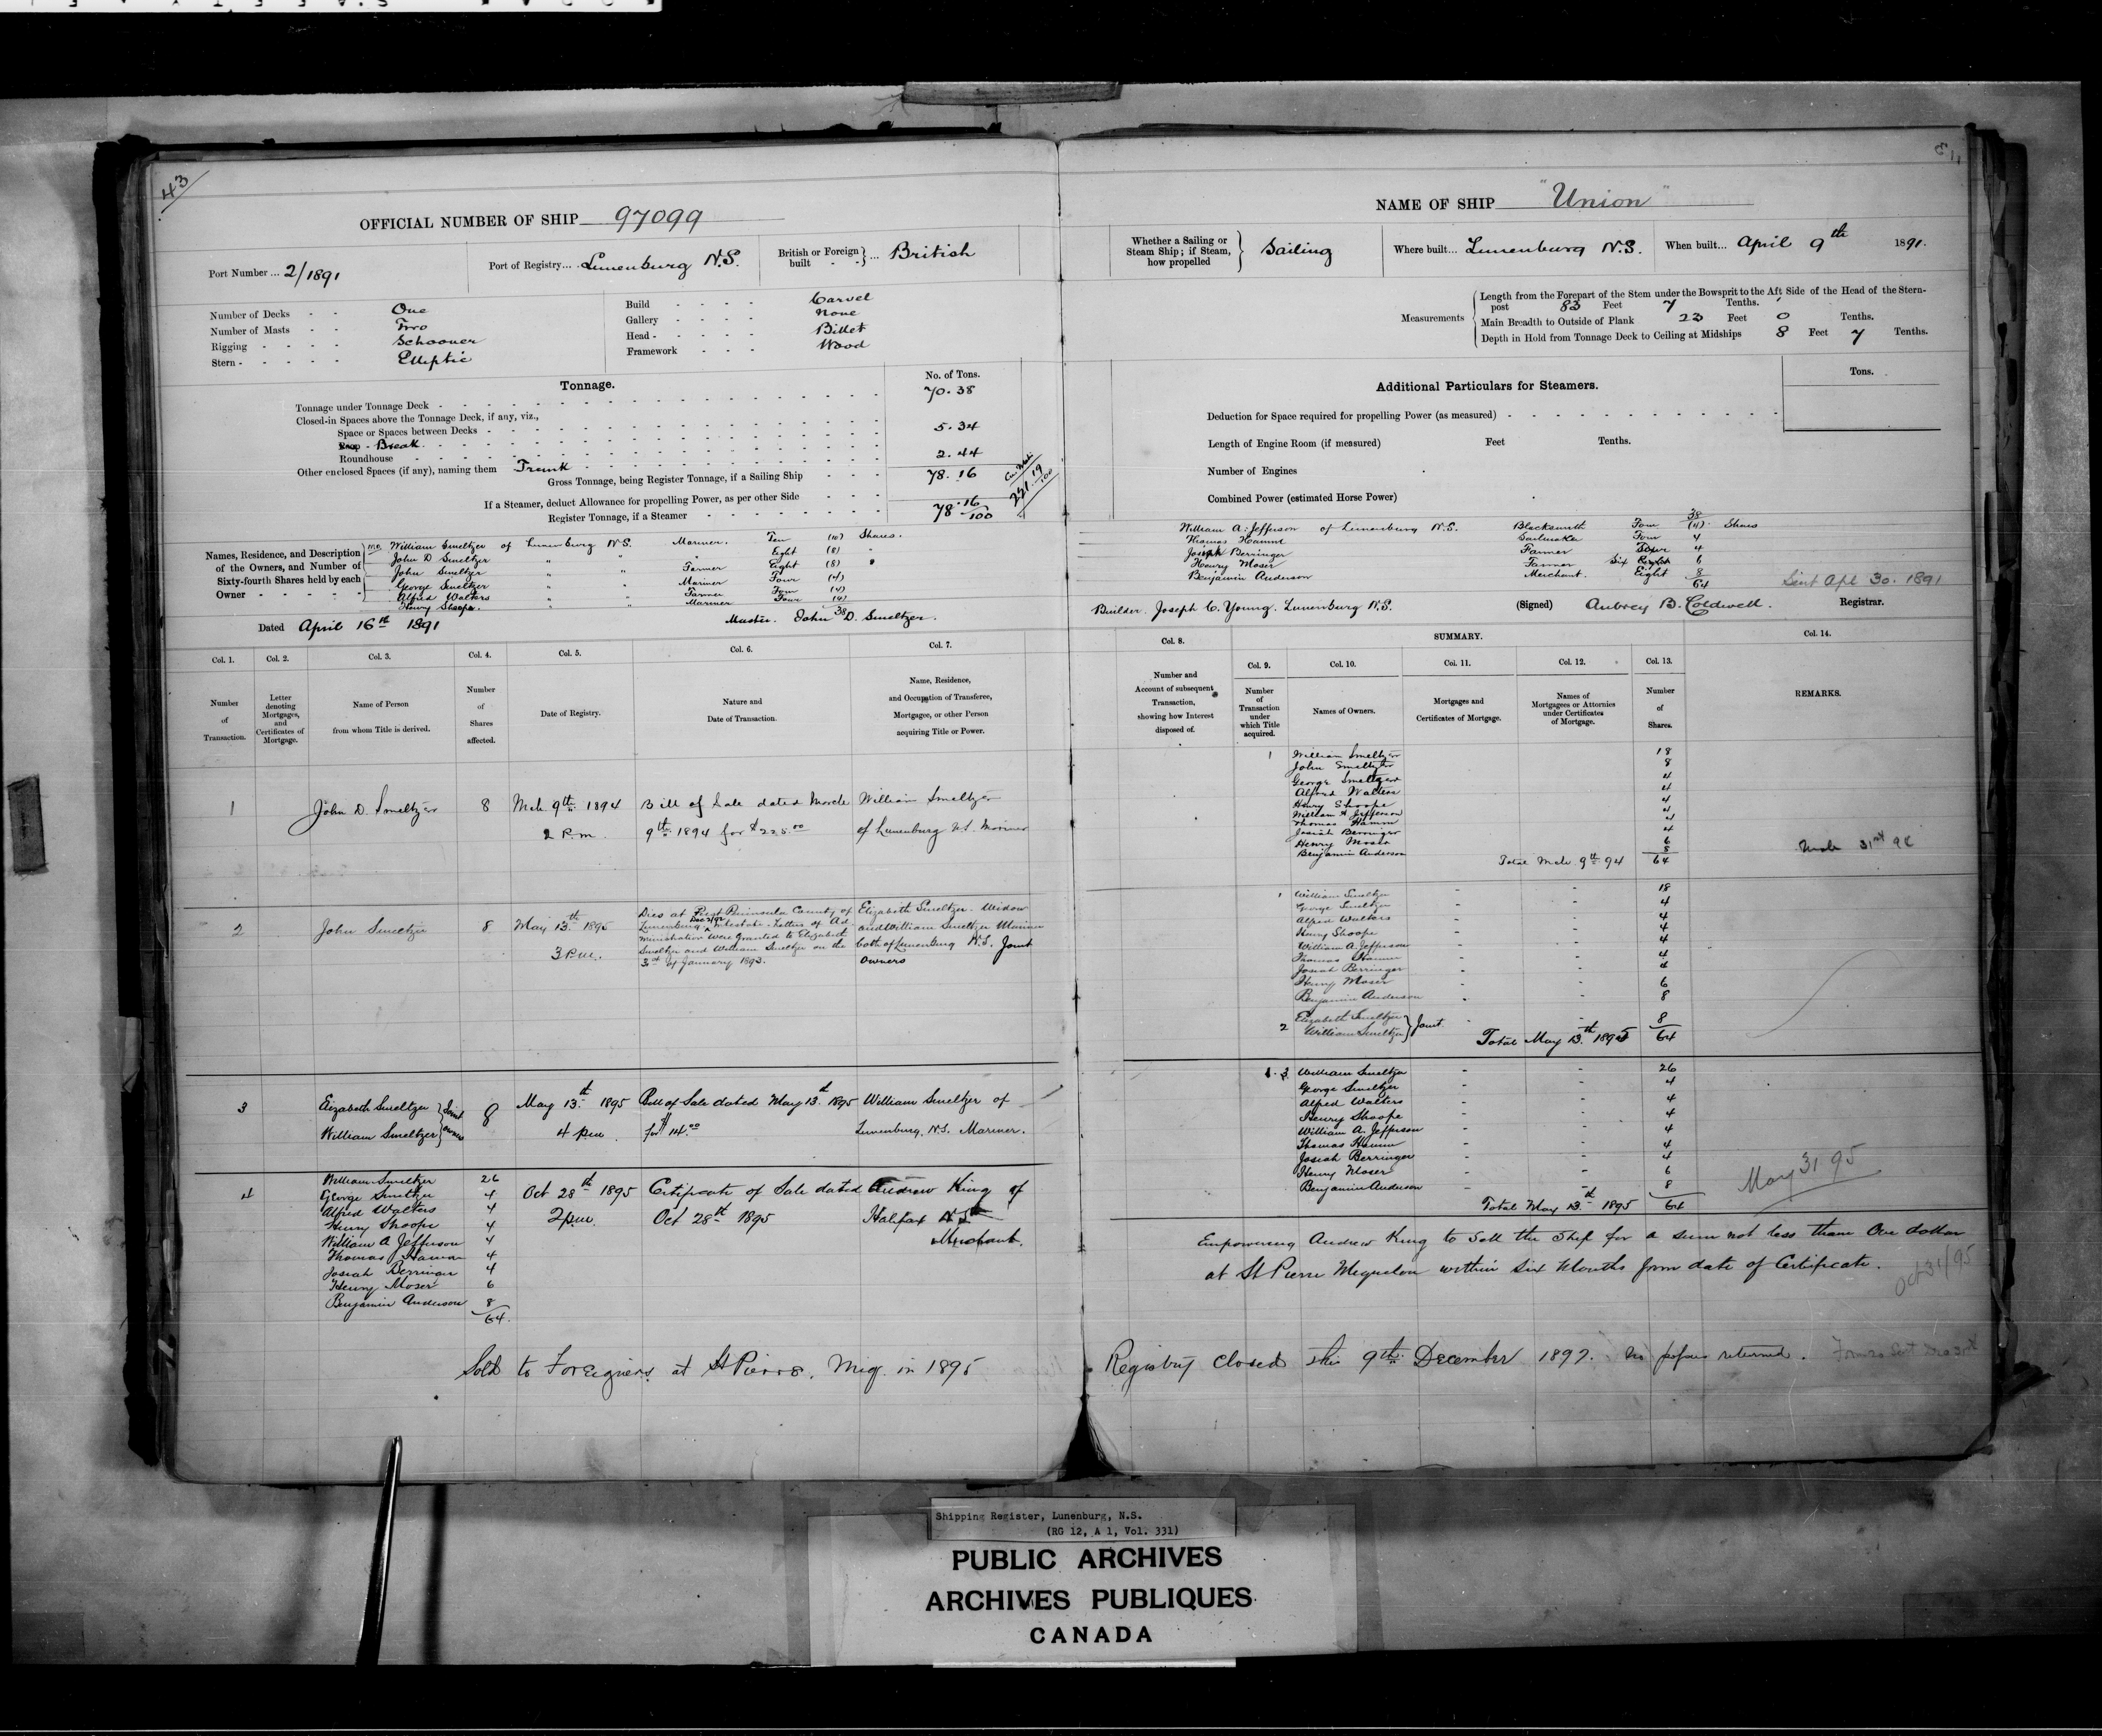 43
OFFICIAL NUMBER OF SHIP 97099
Port Number ... 2/1891
Port of Registry... Lunenburg N.S.
British or Foreign built ... British
Number of Decks - - One
Number of Masts - - Two
Rigging - - - - Schooner
Stern - - - - - Elliptic
Build - - - - Carvel
Gallery - - - - None
Head - - - - Billet
Framework - - - Wood
Tonnage.
No. of Tons.
Tonnage under Tonnage Deck - 70.38
Closed-in Spaces above the Tonnage Deck, if any, viz.,
Space or Spaces between Decks -
Poop - Break 5.34
Roundhouse
Other enclosed Spaces (if any), naming them Trunk 2.44
Gross Tonnage, being Register Tonnage, if a Sailing Ship - - - 78.16
If a Steamer, deduct Allowance for propelling Power, as per other Side - - -
Register Tonnage, if a Steamer 78 16/100
221 19/100
Names, Residence, and Description of the Owners, and Number of Sixty-fourth Shares held by each Owner - - - - -
William Smeltzer of Lunenburg N.S. Mariner. Ten (10) Shares.
John D Smeltzer " " " Eight (8) "
John Smeltzer " " Farmer Eight (8) "
George Smeltzer " " Mariner Four (4)
Alfred Walters " " Farmer Four (4)
Henry Shoope. " " Mariner Four (4)
38
Dated April 16th 1891
Master. John D. Smeltzer.
Col. 1.
Col. 2.
Col. 3.
Col. 4.
Col. 5.
Col. 6.
Col. 7.
Number of Transaction.
Letter denoting Mortgages, and Certificates of Mortgage.
Name of Person from whom Title is derived.
Number of Shares affected.
Date of Registry.
Nature and Date of Transaction.
Name, Residence, and Occupation of Transferee, Mortgagee, or other Person acquiring Title or Power.
1 John D. Smeltzer 8 Mch 9th 1894 Bill of Sale dated March William Smeltzer
2 P.m. 9th 1894 for $225.00 of Lunenburg N.S. Mariner
2 John Smeltzer 8 May 13th 1895
3 P.m.
Dies at First Peninsula County of
Lunenburg Intestate. Letters of Ad
ministration were granted to Elizabeth
Smeltzer and William Smeltzer on the
3rd of January 1893.
Elizabeth Smeltzer Widow
and William Smeltzer Mariner
both of Lunenburg N.S. Joint
owners
3 Elizabeth Smeltzer } Joint 8 May 13th 1895 Bill of Sale dated May 13th 1895 William Smeltzer of
William Smeltzer } owners 4 pm. for $14.00 Lunenburg, N.S. Mariner.
4 William Smeltzer 26
George Smeltzer 4 Oct 28th 1895 Certificate of Sale dated Andrew King of
Alfred Walters 4 2 p.m. Oct 28th 1895 Halifax N.S.
Henry Shoope 4
William A Jefferson 4 Merchant.
Thomas Hamm 4
Josiah Berringer 4
Henry Moser 6
Benjamin Anderson 8
64.
Sold to Foreigners at St Pierre, Miq. in 1895
NAME OF SHIP "Union"
Whether a Sailing or Steam Ship; if Steam, how propelled } Sailing
Where built... Lunenburg N.S.
When built... April 9th 1891.
Measurements
Length from the Forepart of the Stem under the Bowsprit to the Aft Side of the Head of the Stern-
post 83 Feet 7 Tenths.
Main Breadth to Outside of Plank 23 Feet 0 Tenths.
Depth in Hold from Tonnage Deck to Ceiling at Midships 8 Feet 7 Tenths.
Additional Particulars for Steamers.
Tons.
Deduction for Space required for propelling Power (as measured)
Length of Engine Room (if measured) Feet Tenths.
Number of Engines
Combined Power (estimated Horse Power)
38
William A. Jefferson of Lunenburg N.S. Blacksmith Four (4) Shares
Thomas Hamm Sailmaker Four 4
Josiah Berringer Farmer Four 4
Henry Moser Farmer Six 6
Benjamin Anderson Merchant. Eight 8
64
Sent Apl 30. 1891
Builder. Joseph C. Young. Lunenburg N.S.
(Signed) Aubrey B. Caldwell. Registrar.
Col. 8.
SUMMARY.
Col. 14.
Col. 9.
Col. 10.
Col. 11.
Col. 12.
Col. 13.
Number and Account of subsequent Transaction, showing how Interest disposed of.
Number of Transaction under which Title acquired.
Names of Owners.
Mortgages and Certificates of Mortgage.
Names of Mortgagees or Attornies under Certificates of Mortgage.
Number of Shares.
REMARKS.
1 William Smeltzer 18
John Smeltzer 8
George Smeltzer 4
Alfred Walters 4
Henry Shoope 4
William A Jefferson 4
Thomas Hamm 4
Josiah Berringer 4
Henry Moser 6
Benjamin Anderson 8
Total Mch 9th 94 64
Mch 31st 94
1 William Smeltzer - - 18
George Smeltzer - - 4
Alfred Walters - - 4
Henry Shoope - - 4
William A. Jefferson - - 4
Thomas Hamm - - 4
Josiah Berringer - - 4
Henry Moser - - 6
Benjamin Anderson - - 8
2 Elizabeth Smeltzer } Joint - - 8
William Smeltzer }
Total May 13th 1895 64
1. 3 William Smeltzer - - 26
George Smeltzer - - 4
Alfred Walters - - 4
Henry Shoope - - 4
William A. Jefferson - - 4
Thomas Hamm - - 4
Josiah Berringer - - 4
Henry Moser - - 6
Benjamin Anderson - - 8
Total May 13th 1895 64
May 31 95
Empowering Andrew King to Sell the Ship for a sum not less than One dollar
at St Pierre Miquelon within Six Months from date of Certificate.
Oct 31/95
Registry closed this 9th December 1897. No papers returned.
Shipping Register, Lunenburg, N.S.
(RG 12, A 1, Vol. 331)
PUBLIC ARCHIVES
ARCHIVES PUBLIQUES
CANADA